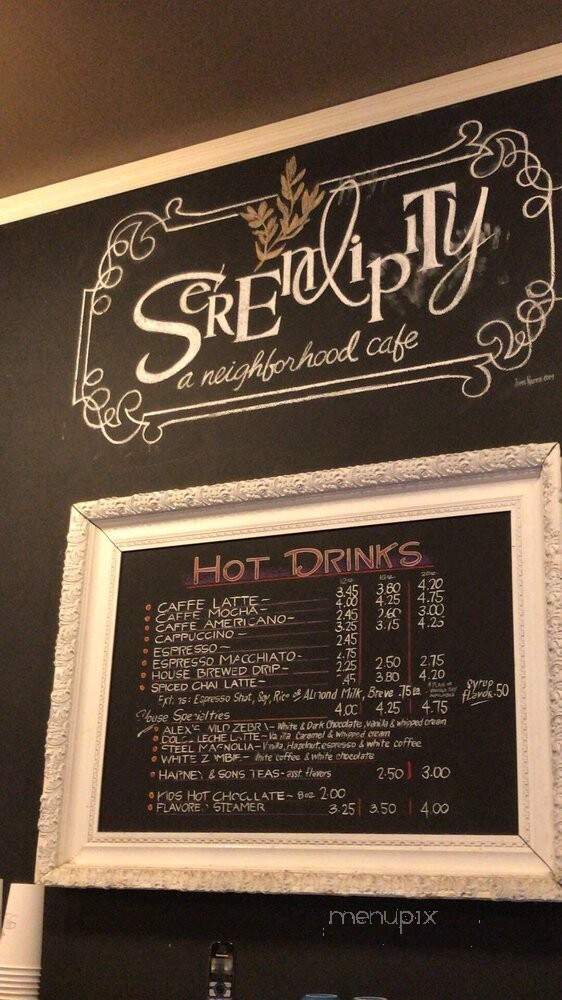 SeRENdipiTy
a neighborhood cafe
HOT DRINKS
12oz 16oz 20oz
CAFFE LATTE- 3.45 3.80 4.20
CAFFE MOCHA- 4.00 4.25 4.75
CAFFE AMERICANO- 2.45 2.60 3.00
CAPPUCCINO- 3.25 3.75 4.25
ESPRESSO- 2.45
ESPRESSO MACCHIATO- 2.75
HOUSE BREWED DRIP- 2.25 2.50 2.75
SPICED CHAI LATTE- .45 3.80 4.20
Ext as: Espresso Shot, Soy, Rice or Almond Milk, Breve .75 ea. syrup flavor .50
House Specialties 4.00 4.25 4.75
ALEX'S WILD ZEBRA- White & Dark Chocolate, Vanilla & whipped cream
LECHE LATTE- Vanilla Caramel & whipped cream
STEEL MAGNOLIA- Vanilla, Hazelnut, espresso & white coffee
WHITE ZOMBIE- white coffee & white chocolate
HARNEY & SONS TEAS- asst. flavors 2.50 3.00
KIDS HOT CHOCOLATE- 8oz 2.00
FLAVORED STEAMER 3.25 3.50 4.00
menupix